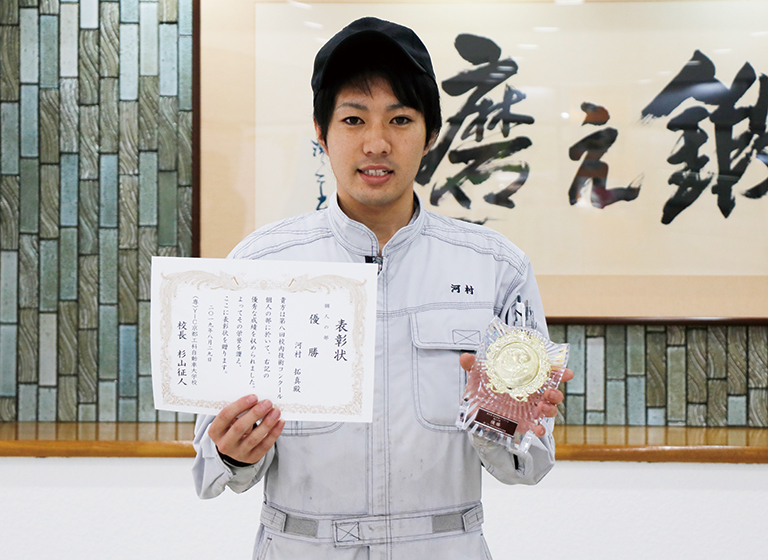 鍛え磨
河村
表彰状
個人の部
優勝
河村 拓真殿
貴方は第八回校内技術コンクール
個人の部に於いて、右記の
優秀な成績を収められました。
よってその栄誉を讃え、
ここに表彰状を贈ります。
二〇一九年八月二九日
(専)YIC京都工科自動車大学校
校長 杉山征人
優勝